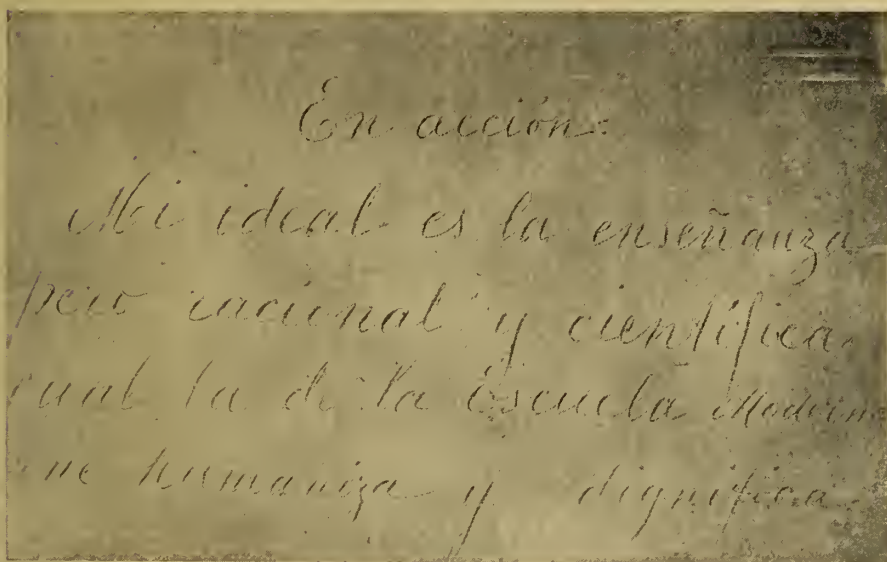 En acción:
Mi ideal es la enseñanza
pero racional y científica
cual la de la Escuela Moderna
que humaniza y dignifica.